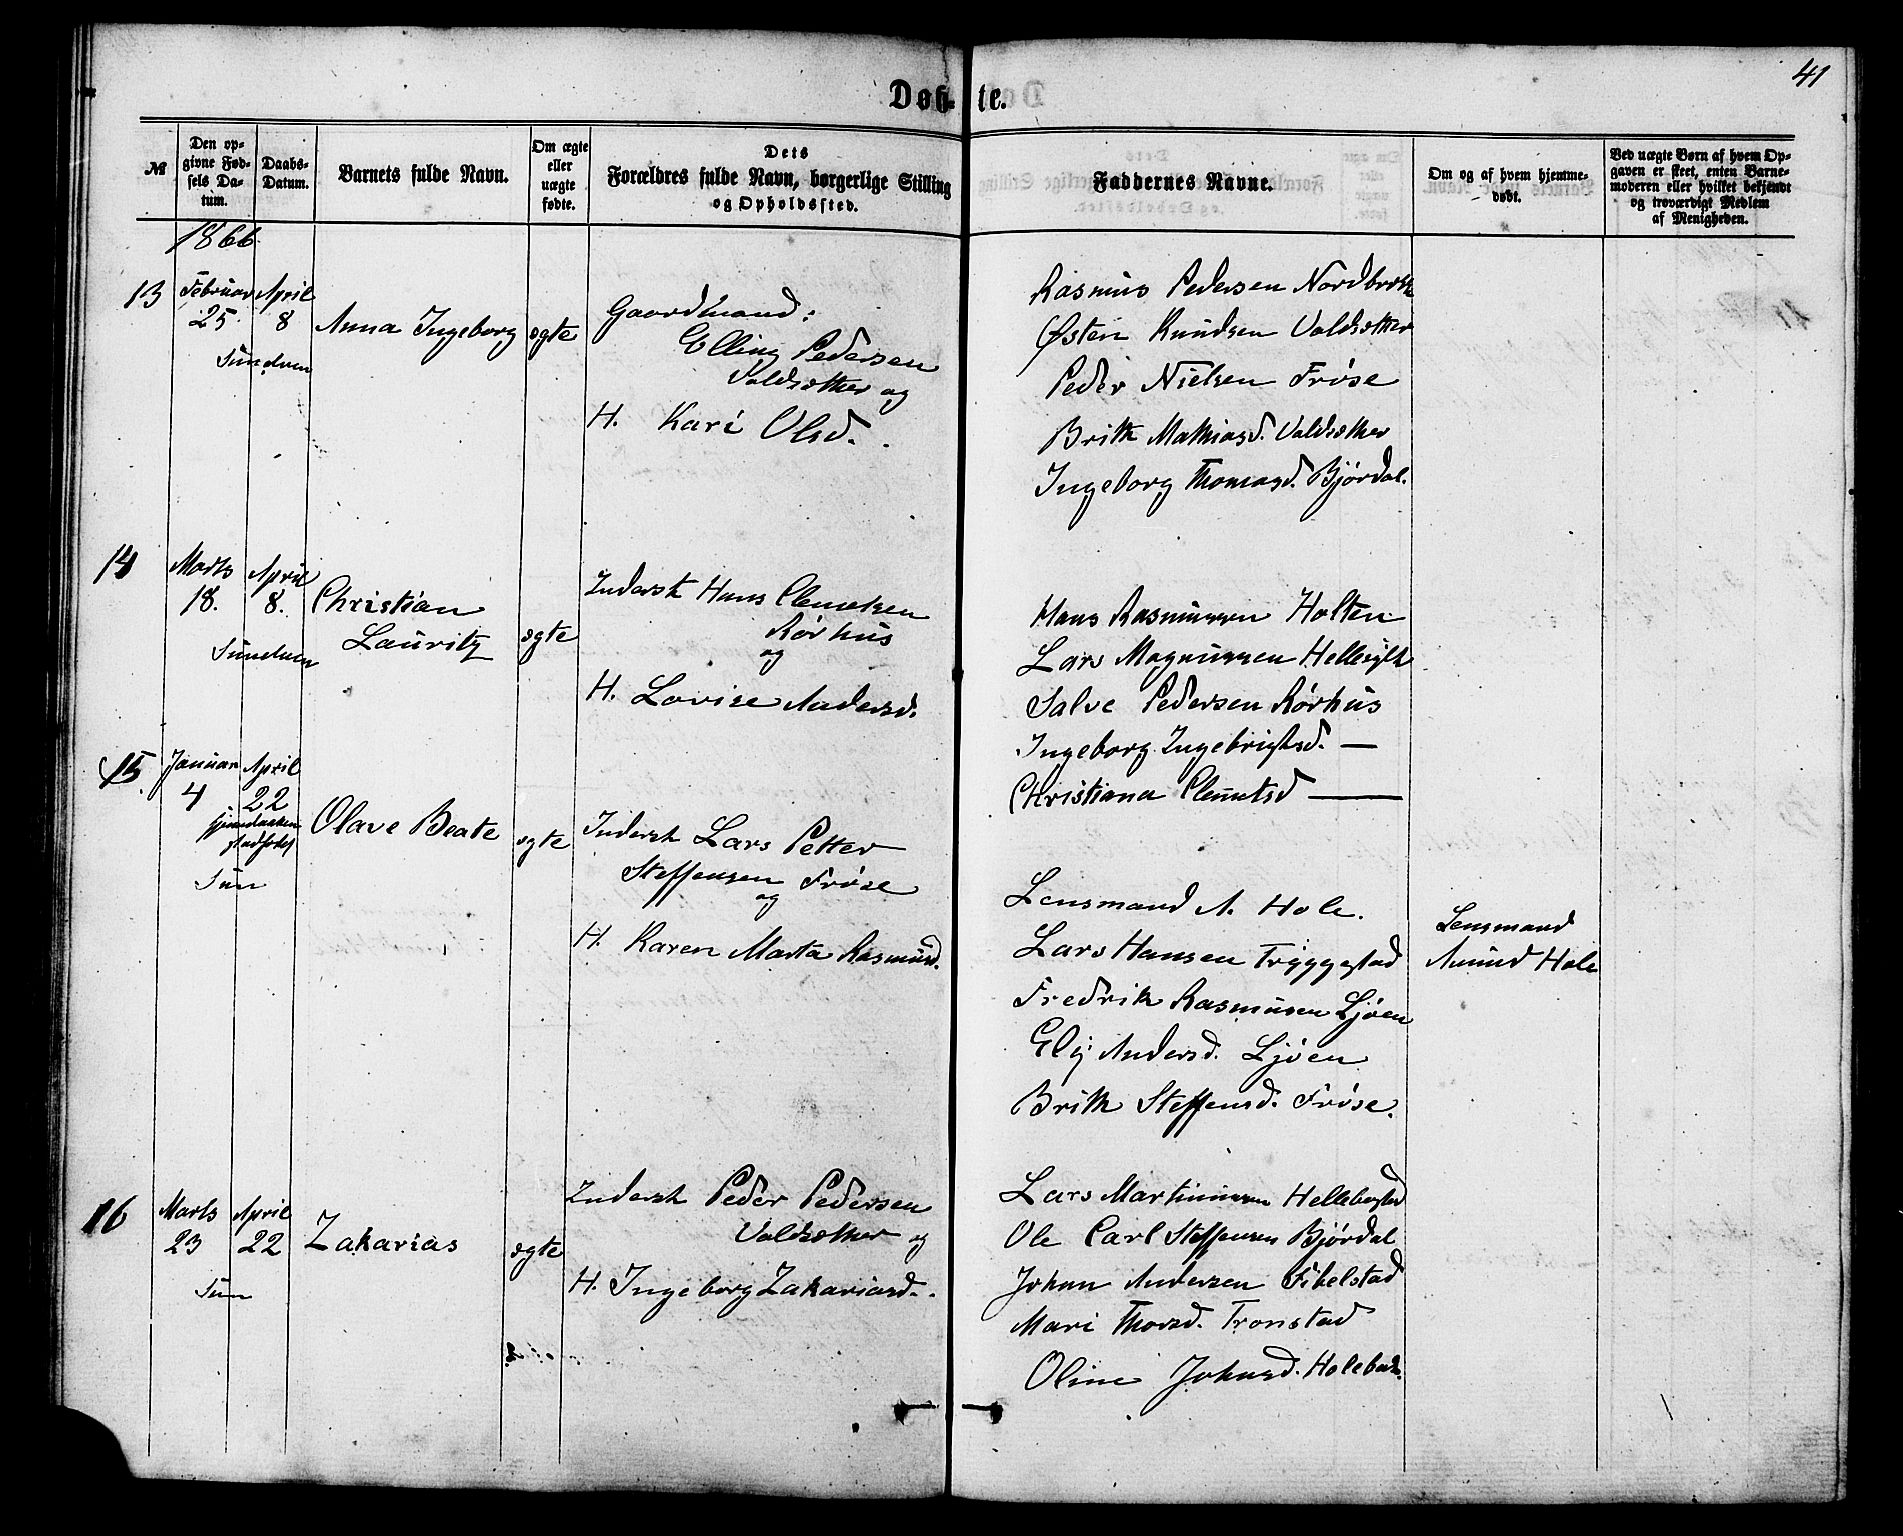 41
Døb- te.
№
Den op-
givne Fød-
sels Da-
tum.
Daabs-
Datum.
Barnets fulde Navn.
Om ægte
eller
uægte
fødte.
Dets
Forældres fulde Navn, borgerlige Stilling
og Opholdssted.
Faddernes Navne.
Om og af hvem hjemme-
døbt.
Ved uægte Børn af hvem Op-
gaven er skeet, enten Barne-
moderen eller hvilket bekjendt
og troværdigt Medlem
af Menigheden.
1866.
13
Februar
25
April
8
Sundven
Anna Ingeborg
ægte
Gaardmand:
Elling Pedersen
Valdsæther og
H. Kari Olsd.
Rasmus Pedersen Nordbrekk
Østen Knudsen Valdsæther
Peder Nielsen Frøse
Brith Mathiasd. Valdsæther
Ingeborg Thomasd. Bjørdal.
14
Marts
18.
April
8.
Sundven
Christian
Lauritz
ægte
Inderst Hans Clemetsen
Rørhus
og
H. Lovise Andersd.
Hans Rasmussen Holten
Lars Magnussen Hellesylt
Salve Pedersen Rørhus
Ingeborg Ingebrigtsd. —
Christiana Clemetsd —
15
Januar
4
April
22
Sun
Olave Beate
ægte
Inderst Lars Petter
Steffensen Frøse
og
H. Karen Marta Rasmusd.
Lensmand A. Hole.
Lars Hansen Tryggestad
Fredrik Rasmusen Ljøen
Eli Andersd. Ljøen
Brith Steffensd. Frøse.
Lensmand
Amund Hole
16
Marts
23
April
22
Sun
Zakarias
ægte
Inderst Peder Pedersen
Valdsæther og
H. Ingeborg Zakariasd.
Lars Martinussen Hellebostad
Ole Carl Steffensen Bjørdal
Johan Andersen Fibelstad
Mari Thorsd. Tronstad
Oline Johnsd. Holebak.